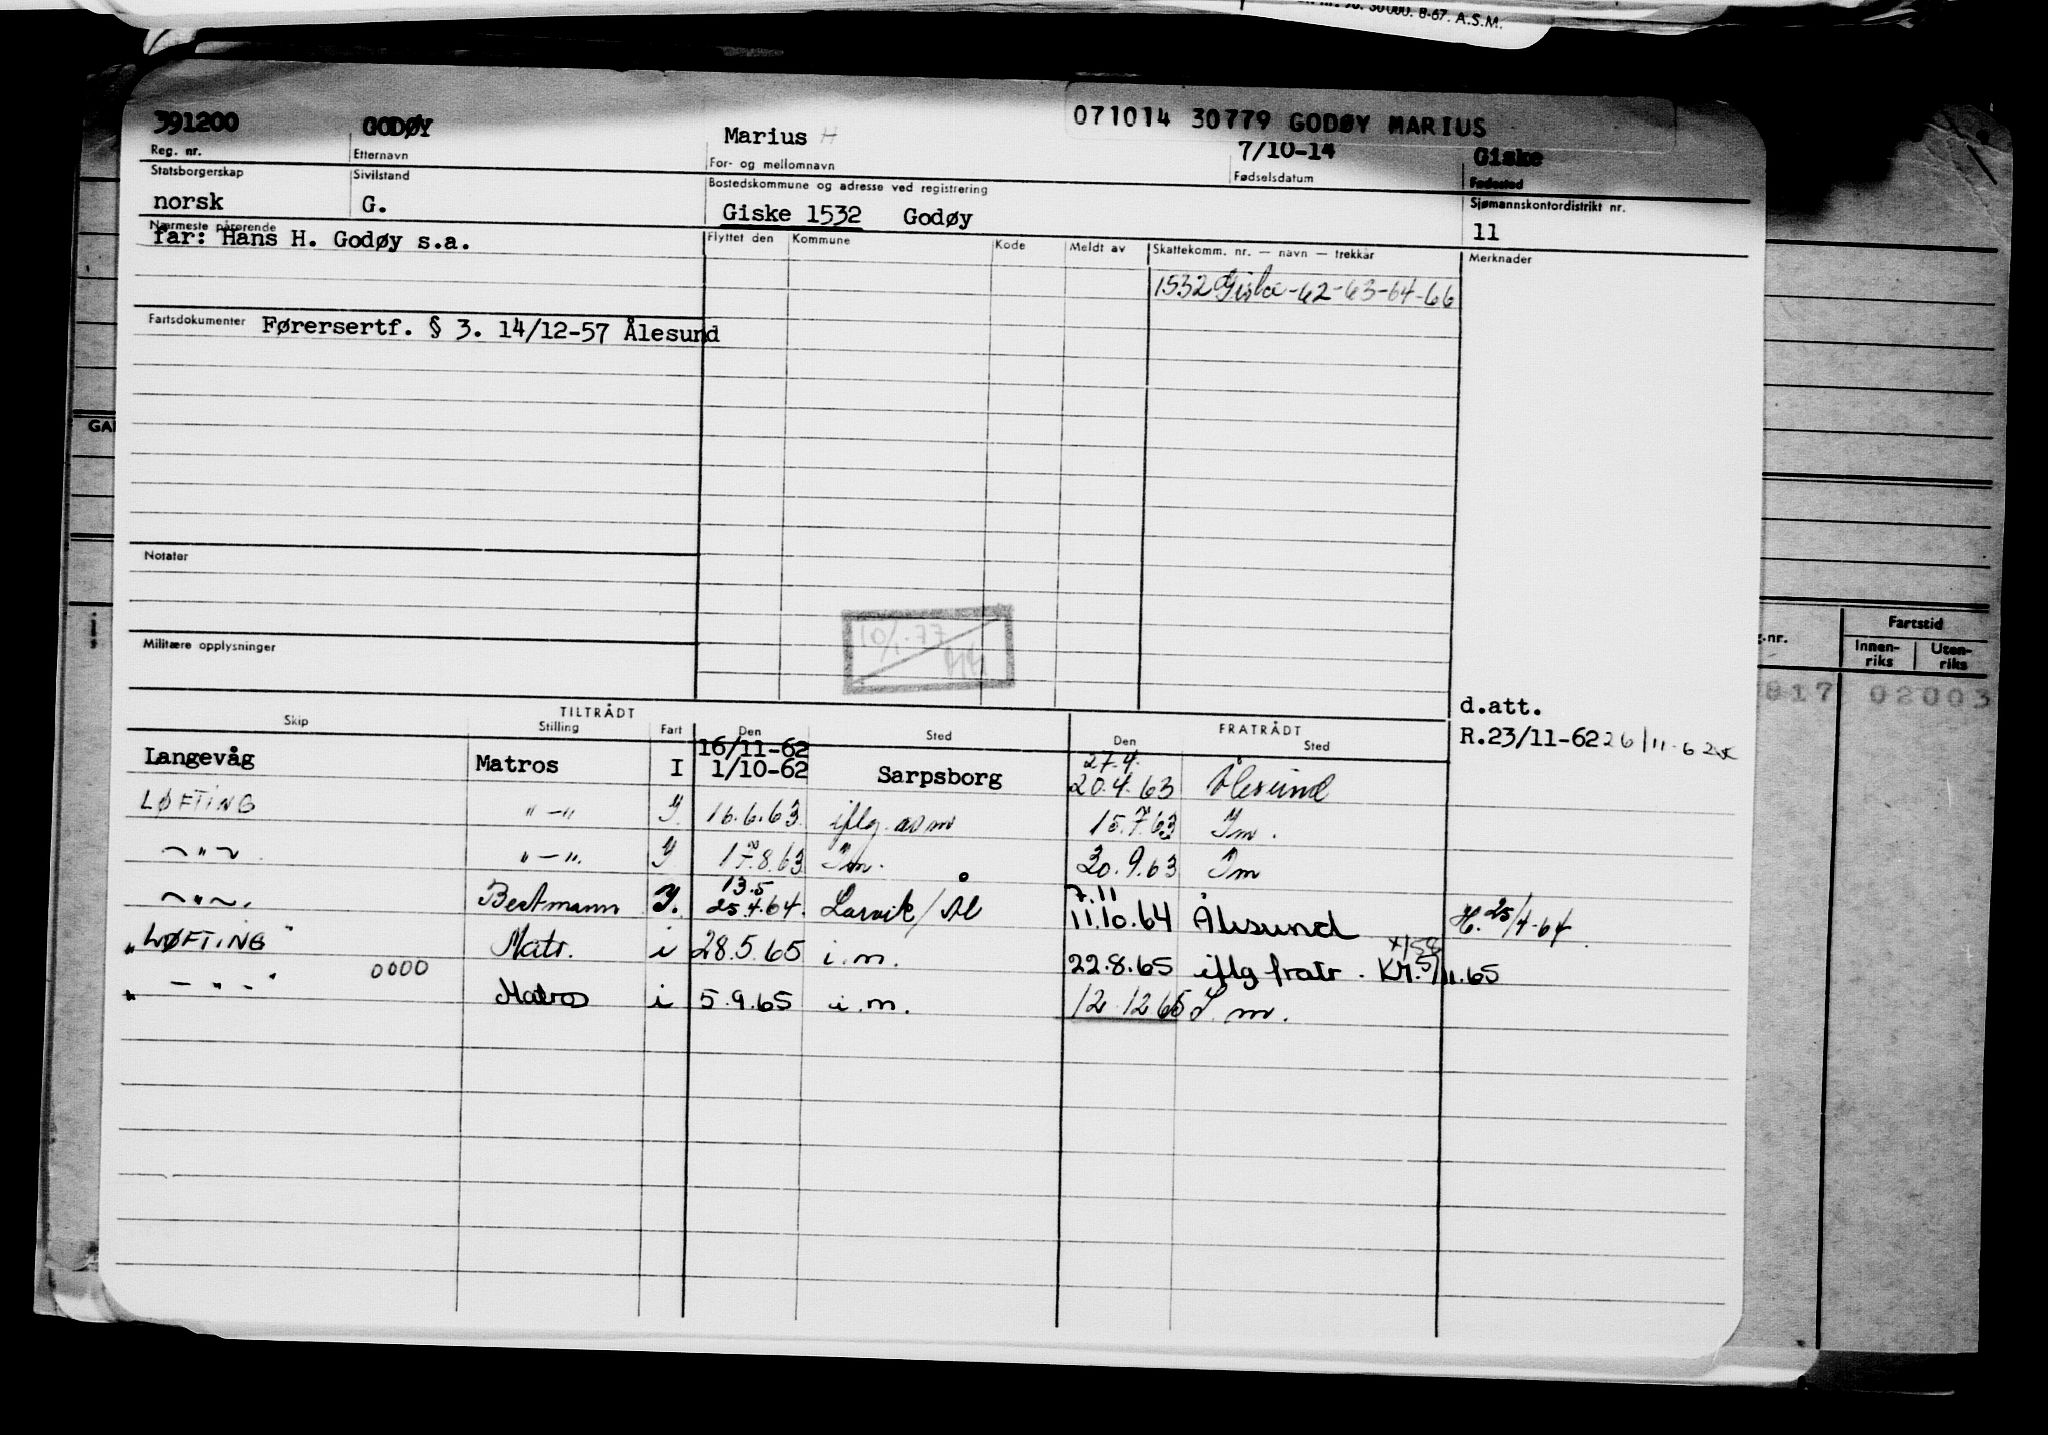 30000. 8-67. A.S.M.
071014 30779 GODØY MARIUS
391200 GODØY Marius H 7/10-14 Giske
Reg. nr. Etternavn For- og mellomnavn Fødselsdatum Fødested
Statsborgerskap Sivilstand Bostedskommune og adresse ved registrering Sjømannskontordistrikt nr.
norsk G. Giske 1532 Godøy 11
Nærmeste pårørende Flyttet den Kommune Kode Meldt av Skattekomm. nr. — navn — trekkår Merknader
far: Hans H. Godøy s.a.
1532 Giske-62-63-64-66
Fartsdokumenter Førersertf. § 3. 14/12-57 Ålesund
GAI
Notater
10/1-77
44
Militære opplysninger
Fartstid
g.nr. Innen-riks Uten-riks
817 02003
d.att.
TILTRÅDT FRATRÅDT
Skip Stilling Fart Den Sted Den Sted
R.23/11-62 26/11-62
16/11-62 27.4.
Langevåg Matros I 1/10-62 Sarpsborg 20.4.63 Ålesund
LØFTING "—" Y. 16.6.63 iflg. avm 15.7.63 Im.
~"~ "—". Y. 17.8.63 Im. 30.9.63 Im
13.5 7.11
~"~. Bestmann Y. 25.4.64. Larvik/Ål 11.10.64 Ålesund H. 25/4-64
"LØFTING" Matr. i 28.5.65 i.m. 22.8.65 iflg fratr. KM.5/11.65
0000
" — " — " Matros i 5.9.65 i.m. 12.12.65 I.m.